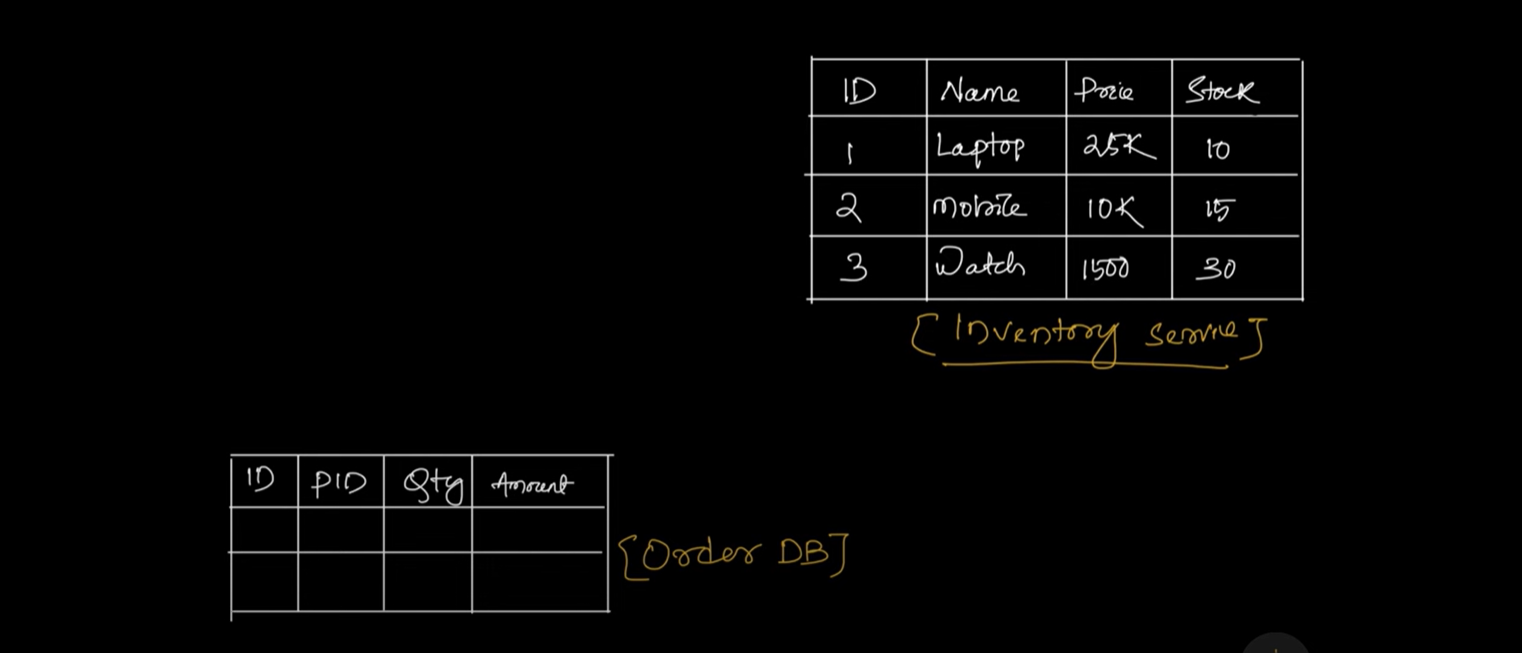 ID Name Price Stock
1 Laptop 25K 10
2 Mobile 10K 15
3 Watch 1500 30
[Inventory Service]
ID PID Qty Amount
[Order DB]